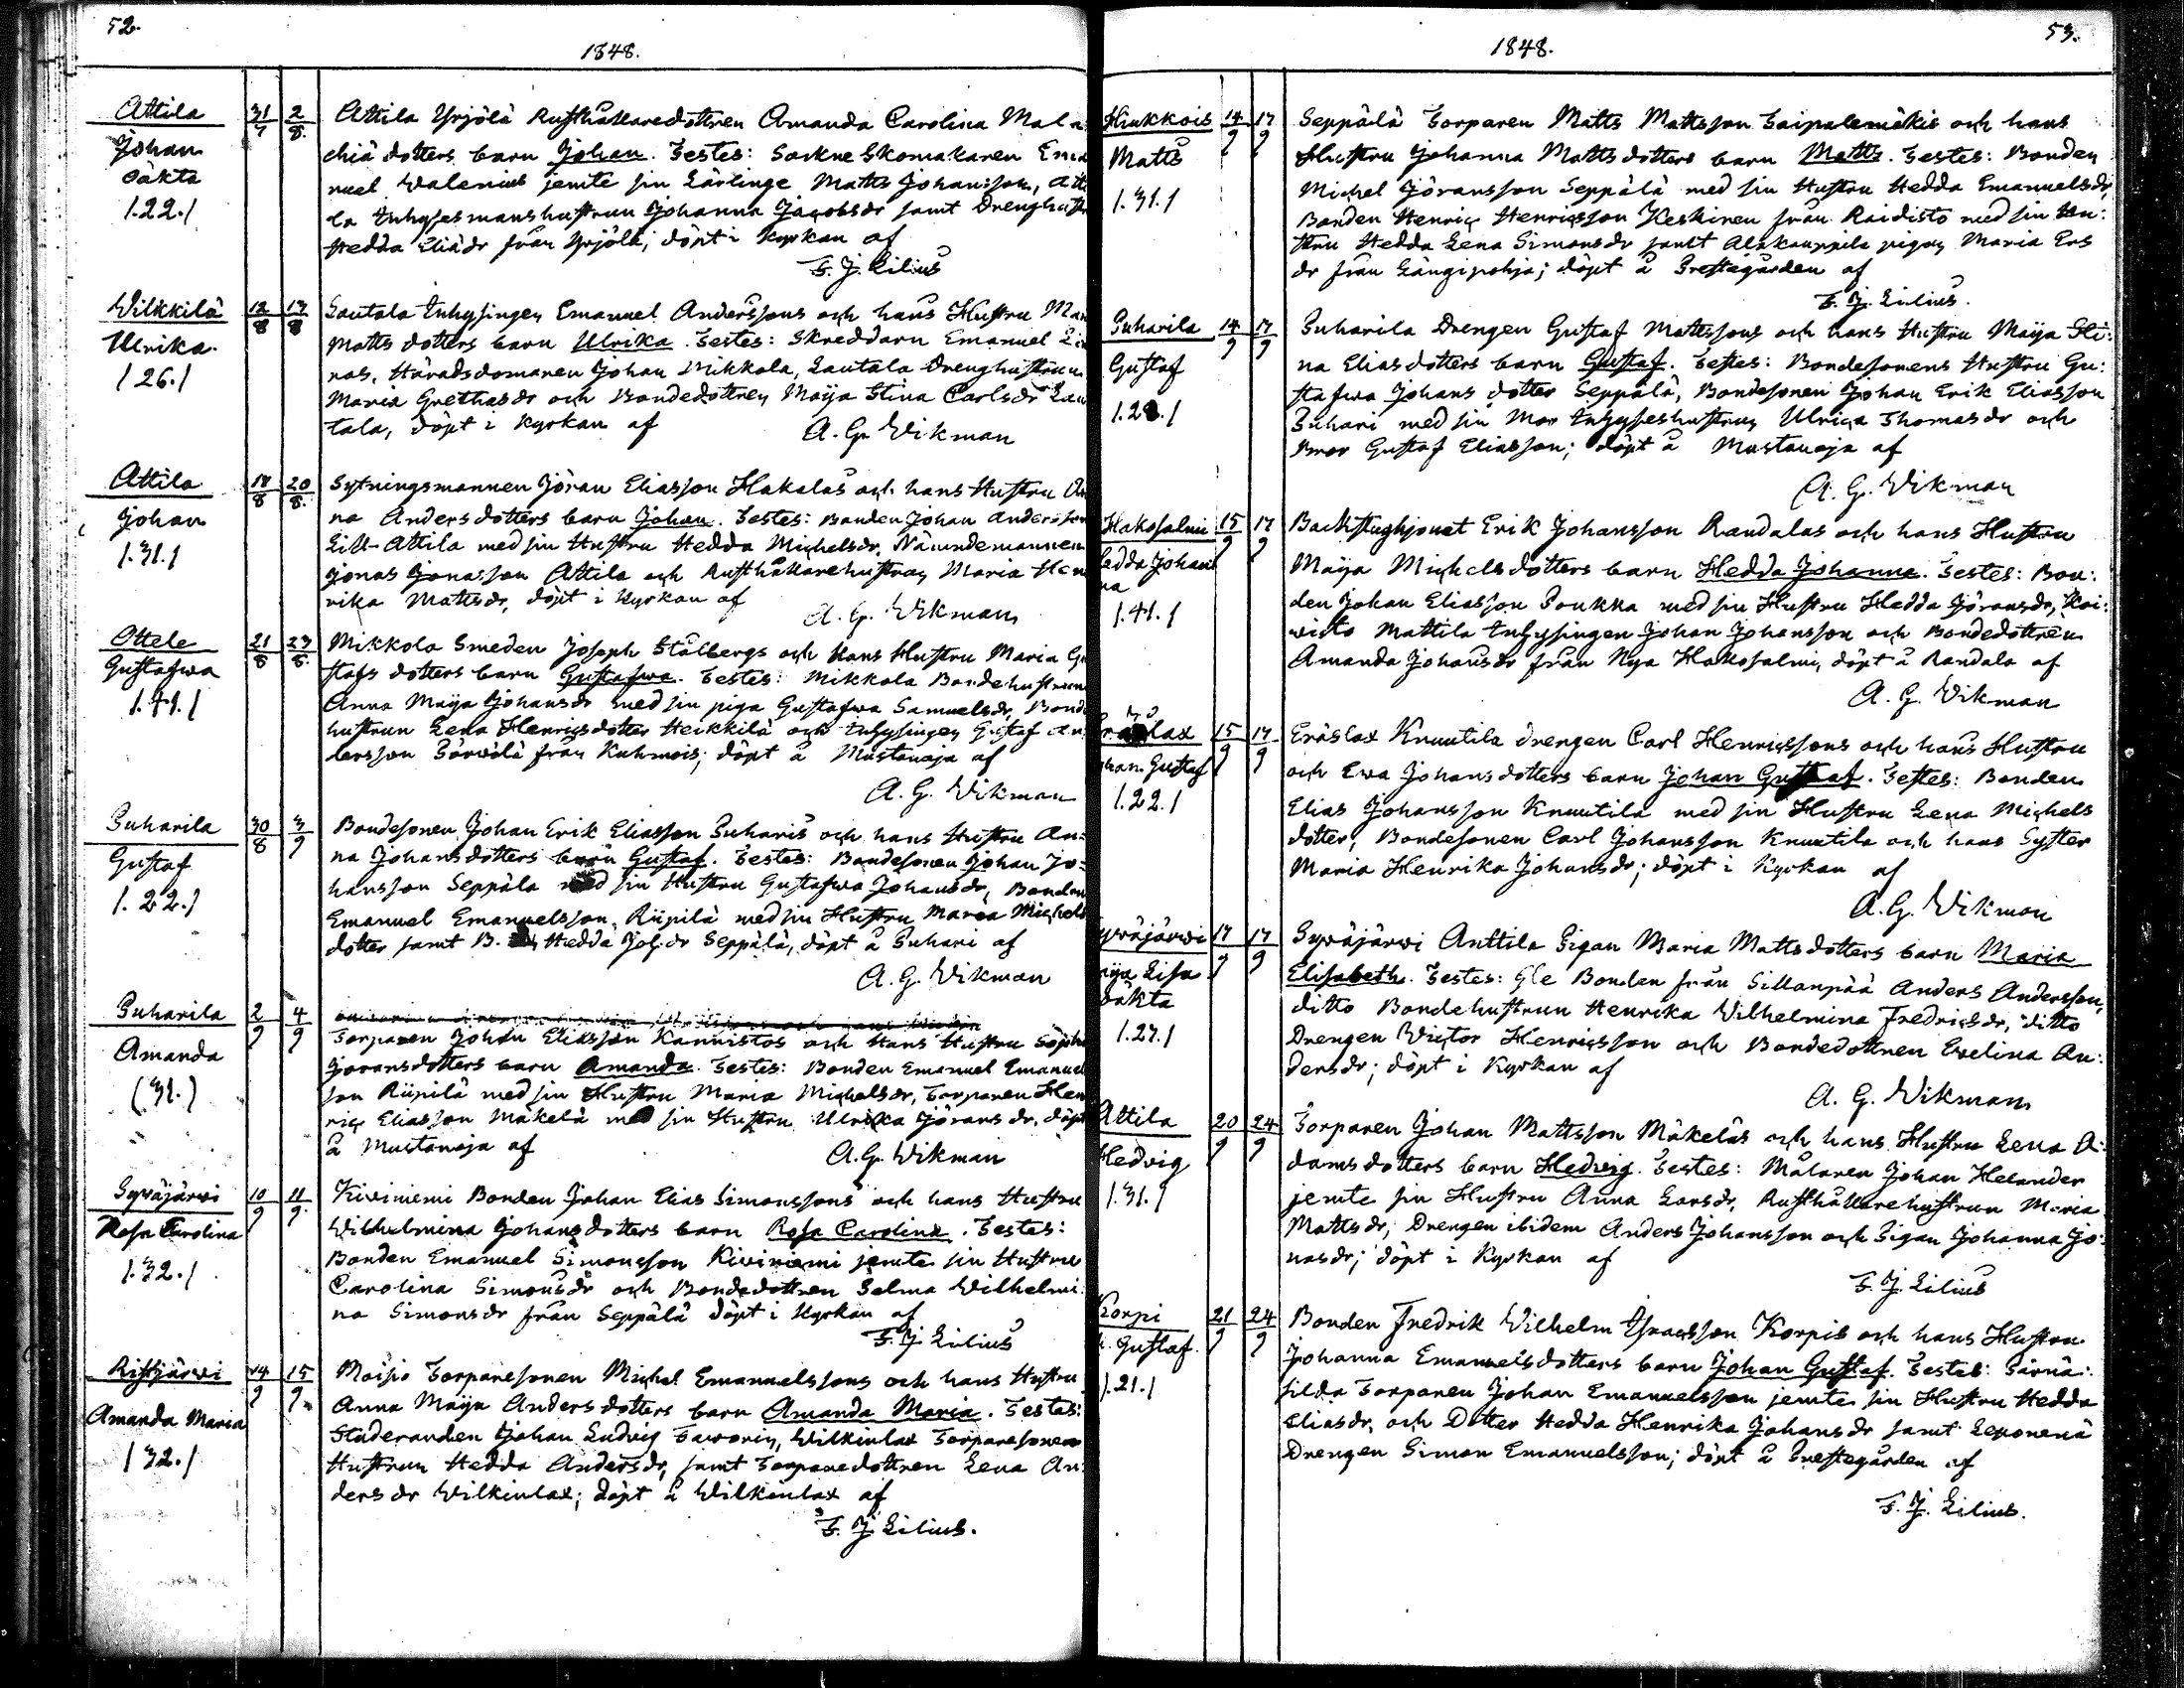 52.
1848.
Attila
Johan
oäkta
1.22.1
31/7
2/8.
Attila Yrjölä Rusthållaredottren Amanda Carolina Mala
chiä dotters barn Johan. Testes: Sockne Skomakaren Ema
nuel Walenius jemte sin Lärlinge Matts Johansson, Atti
la Inhysesmanshustrun Johanna Jacobsdr samt Drenghustr
Hedda Eliädr från Yrjölä; döpt i Kyrkan af
F. J. Lilius
Wilkkilä
Ulrika
1 26.1
12/8
13/8
Lautala Inhysingen Emanuel Anderssons och hans Hustru Mar
Matts dotters barn Ulrika. Testes: Skreddarn Emanuel Li
nas, Häradsdomaren Johan Mikkola, Lautala Drenghustrun
Maria Grethasdr och Bondedottren Maija Stina Carlsdr Lau
tala, döpt i Kyrkan af
A. G. Wikman
Attila
Johan
1.31.1
18/8
20/8.
Sytningsmannen Jöran Eliasson Hakalas och hans Hustru An
na Andersdotters barn Johan. Testes: Bonden Johan Andersson
Lill-Attila med sin Hustru Hedda Michelsdr, Nämndemannen
Jonas Jonasson Attila och Rusthållarehustrun Maria Hen
rika Mattsdr, döpt i Kyrkan af
A. G. Wikman
Ottele
Gustafwa
1.41.1
21/8
23/8.
Mikkola Smeden Joseph Stålbergs och Hans Hustru Maria Gu
stafs dotters barn Gustafwa. Testes: Mikkola Bondehustrun
Anna Maija Johansdr med sin piga Gustafwa Samuelsdr, Bonde
hustrun Lena Henricsdotter Heikkilä och Inhysingen Gustaf An
dersson Särwälä från Kuhmois; döpt å Mustanoja af
A. G. Wikman
Puharila
Gustaf
1.22.1
30/8
3/9
Bondesonen Johan Erik Eliasson Puharis och hans Hustru An:
na Johansdotters barn Gustaf. Testes: Bondesonen Johan Jo:
hansson Seppälä med sin Hustru Gustafwa Johansdr, Bonden
Emanuel Emanuelsson Riipilä med sin Hustru Maria Michels
dotter samt B. Hedda Joh.dr Seppälä, döpt å Puhari af
A. G. Wikman
Puharila
Amanda
(31.)
2/9
4/9
Torparen Johan Eliasson Kannistos och Hans Hustru Sophi
Göransdotters barn Amanda. Testes: Bonden Emanuel Emanuel
son Riipilä med sin Hustru Maria Michelsdr, Torparen Hen
ric Eliasson Mäkelä med sin Hustru Ulrika Jöransdr, döpt
å Mustanoja af
A. G. Wikman
Sywäjärwi
Rosa Carolina
1.32.1
10/9
11/9.
Kiviniemi Bonden Johan Elias Simonssons och hans Hustru
Wilhelmina Johansdotters barn Rosa Carolina. Testes:
Bonden Emanuel Simonsson Kiviniemi jemte sin Hustru
Carolina Simonsdr och Bondedottren Selma Wilhelmi:
na Simonsdr från Seppälä döpt i Kyrkan af
F. J. Lilius
Ristjärwi
Amanda Maria
1 32.1
14/9
15/9.
Moisio Torparesonen Michel Emanuelssons och hans Hustru
Anna Maija Andersdotters barn Amanda Maria. Testes:
Studeranden Johan Ludvig Faworin, Wilkinlax Torparesonens
Hustrun Hedda Andersdr, samt Torparedottren Lena An:
dersdr Wilkinlax; döpt å Wilkinlax af
F. J. Lilius.
53.
1848.
Hukkois
Matts
1.31.1
14/9
17/9
Seppälä Torparen Matts Mattsson Taipalemäkis och hans
Hustru Johanna Mattsdotters barn Matts. Testes: Bonden
Michel Jöransson Seppälä med sin Hustru Hedda Emanuelsdr,
Bonden Henric Henricsson Keskinen från Raidisto med sin Hu:
stru Hedda Lena Simonsdr samt Alakauppila pigan Maria Ers
dr från Längipohja; döpt å Prestegården af
F. J. Lilius.
Puharila
Gustaf
1.28.1
14/9
17/9
Puharila Drengen Gustaf Mattssons och hans Hustru Maija Sti:
na Eliasdotters barn Gustaf. Testes: Bondesonens Hustru Gu:
stafwa Johans dotter Seppälä, Bondesonen Johan Erik Eliasson
Puhari med sin Mor Inhyseshustrun Ulrica Thomasdr och
Bror Gustaf Eliasson; döpt å Mustanoja af
A. G. Wikman
Hakosalmi
edda Johan
na
1.41.1
15/9
17/9
Backstughjonet Erik Johansson Randalas och hans Hustru
Maija Michelsdotters barn Hedda Johanna. Testes: Bon:
den Johan Eliasson Poukka med sin Hustru Hedda Jöransdr, Koi:
wisto Mattila Inhysingen Johan Johansson och Bondedottren
Amanda Johansdr från Nya Hakosalmi, döpt å Randala af
A. G. Wikman
lax
han Gustaf
1.22.1
15/9
17/9
Eräslax Knuutila drengen Carl Henricssons och hans Hustru
och Ewa Johansdotters barn Johan Gustaf. Testes: Bonden
Elias Johansson Knuutila med sin Hustru Lena Michels
dotter, Bondesonen Carl Johansson Knuutila och hans Syster
Maria Henrika Johansdr; döpt i Kyrkan af
A. G. Wikman
ywäjärwi
ija Lisa
oäkta
1.27.1
17/9
17/9
Sywäjärwi Anttila Pigan Maria Mattsdotters barn Maria
Elisabeth. Testes: Gle Bonden från Sillanpää Anders Andersson,
ditto Bondehustrun Henrika Wilhelmina Fredricsdr, ditto
Drengen Wictor Henricsson och Bondedottren Ewelina An:
dersdr; döpt i Kyrkan af
A. G. Wikman
Attila
Hedvig
1.31.1
20/9
24/9
Torparen Johan Mattsson Mäkeläs och hans Hustru Lena A:
damsdotters barn Hedvig. Testes: Målaren Johan Helander
jemte sin Hustru Anna Larsdr, Rusthållarehustrun Maria
Mattsdr, Drengen ibidem Anders Johansson och Pigan Johanna Jo:
nasdr; döpt i Kyrkan af
F. J. Lilius
Korpi
h. Gustaf.
1.21.1
21/9
24/9
Bonden Fredrik Wilhelm Isracsson Korpis och hans Hustru
Johanna Emanuelsdotters barn Johan Gustaf. Testes: Särnä:
silda Torparen Johan Emanuelsson jemte sin Hustru Hedda
Eliasdr, och Dotter Hedda Henrika Johansdr samt Leponenä
Drengen Simon Emanuelsson; döpt å Prestegården af
F. J. Lilius.